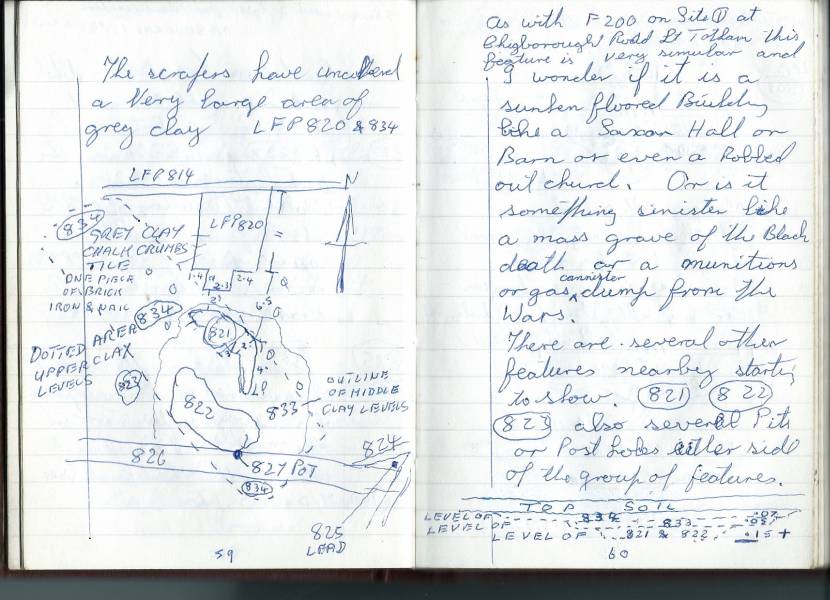 The scrapers have uncovered
a Very large area of
grey clay LFP820 & 834
LFP814
N
834
GREY CLAY
CHALK CRUMBS
TILE
ONE PIECE
OF BRICK
IRON & NAIL
LFP820
=
1.4
2.3
2.4
6.5
834
821
DOTTED AREA
UPPER CLAX
LEVELS
823
822
833
OUTLINE
OF MIDDLE
CLAY LEVELS
824
826
827 POT
834
825
LEAD
59
As with F200 on Site 1 at
Chigborough Road Lt Totham this
feature is very simular and
I wonder if it is a
sunken floored Building
like a Saxon Hall or
Barn or even a Robbed
out church. Or is it
something sinister like
a mass grave of the Black
death or a munitions
or gas cannister dump from the
Wars.
There are several other
features nearby starting
to show. 821 822
823 also several Pits
or Post holes either side
of the group of features.
TOP SOIL
LEVEL OF 834 .07
LEVEL OF 833
LEVEL OF 821 & 822 .15 +
60